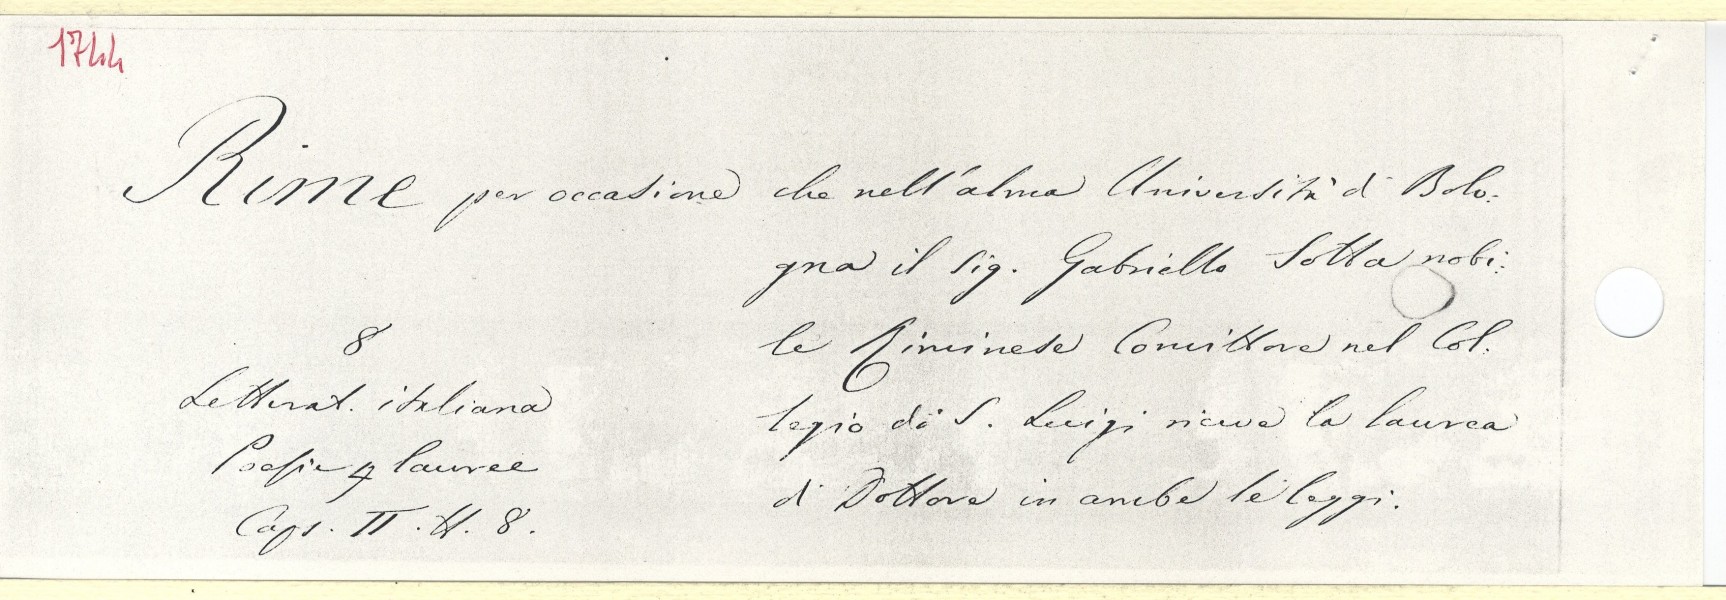 1744
Rime per occasione che nell'alma Università di Bolo:
gna il sig. Gabriello Sotta nobi:
le Riminese Convittore nel Col:
legio di S. Luigi riceve la laurea
di Dottore in ambe le leggi.
8
Letterat. italiana
Poesie p lauree
Caps. II. H. 8.